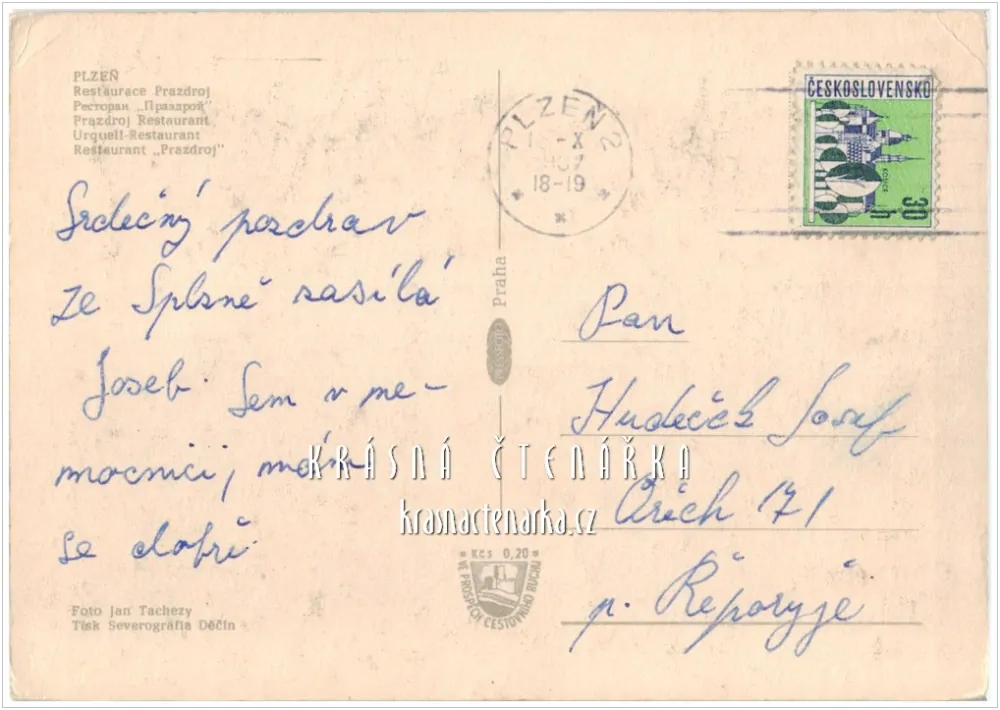 PLZEŇ
Restaurace Prazdroj
Ресторан „Праздрой"
Prazdroj Restaurant
Urquell-Restaurant
Restaurant „Prazdroj"
Srdečný pozdrav
ze Splzně zasílá
Josef. Sem v ne-
mocnici, mám
se dobře.
Foto Jan Tachezy
Tisk Severografia Děčín
PLZEŇ 2
-X
18-19
ČESKOSLOVENSKO
KOŠICE
30 h
Praha
PRESSFOTO
Pan
Hudeček Josef
Ořech 171
p. Řeporyje
KRÁSNÁ ČTENÁŘKA
krasnactenarka.cz
KCS 0,20
VE PROSPĚCH CESTOVNÍHO RUCHU